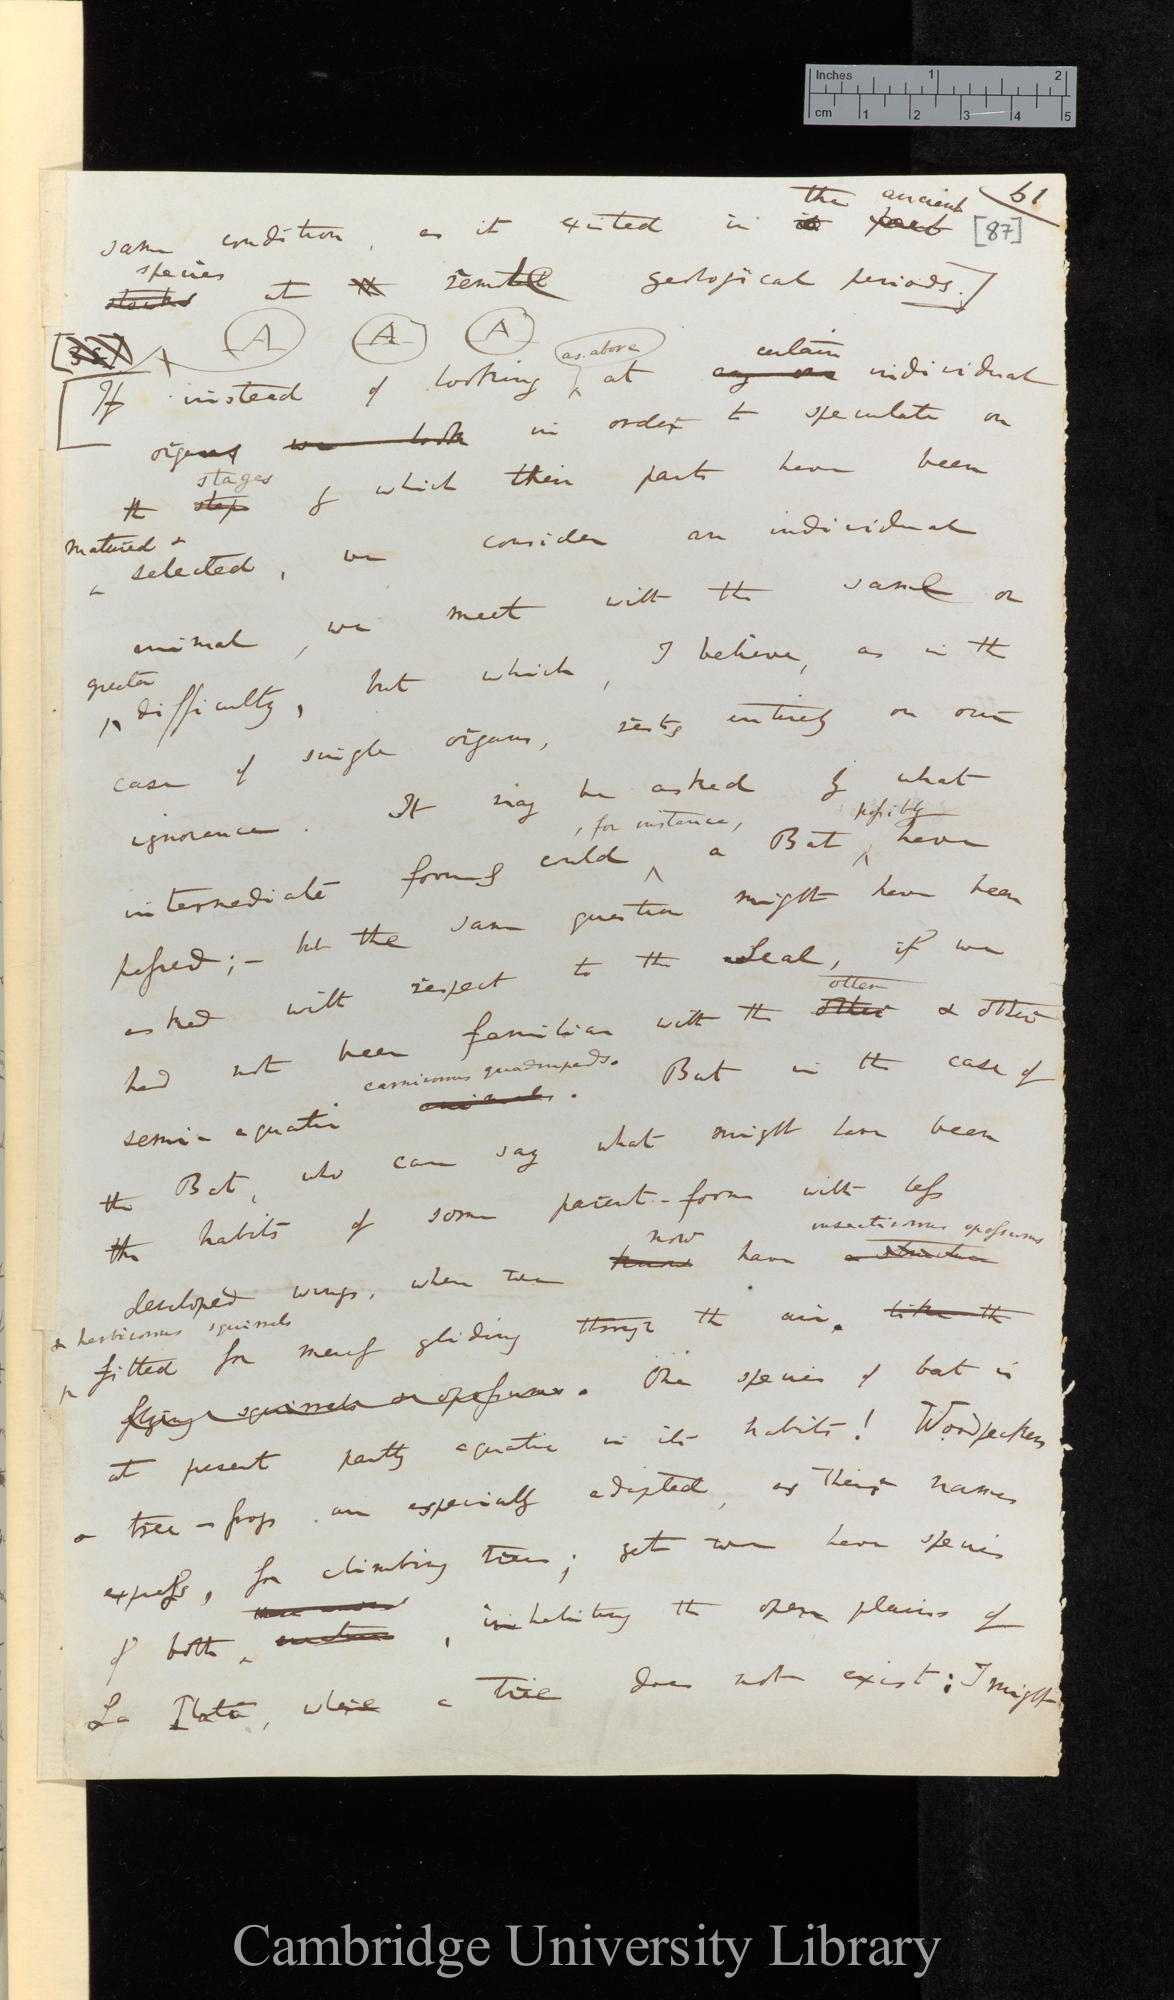 Inches 1 2
cm 1 2 3 4 5
61
the ancient
same condition, as it existed in its past [87]
species
stocks at remote geological periods.]
A A A
as above certain
If instead of looking at any one individual
organs we look in order to speculate on
stages
the steps by which their parts have been
matured &
selected, we consider an individual
animal, we meet with the same or
greater
difficulty, but which, I believe, as in the
case of single organs, rests entirely on our
ignorance. It may be asked by what
, for instance, possibly
intermediate forms could a Bat have
passed; – but the same question might have been
asked with respect to the Seal, if we
otter
had not been familiar with the other & other
carnivorous quadrupeds.
semi-aquatic animals. But in the case of
the Bat, who can say what might have been
the habits of some parent-form with less
now insectivorous opossums
developed wings, when we know have a structure
& herbivorous squirrels
fitted for merely gliding through the air. like the
flying squirrels or opossums. One species of bat is
at present partly aquatic in its habits! Woodpeckers
& tree-frogs are especially adapted, as their names
express, for climbing trees; yet we have species
of both, inhabiting the open plains of
La Plata, where a tree does not exist; I might
Cambridge University Library